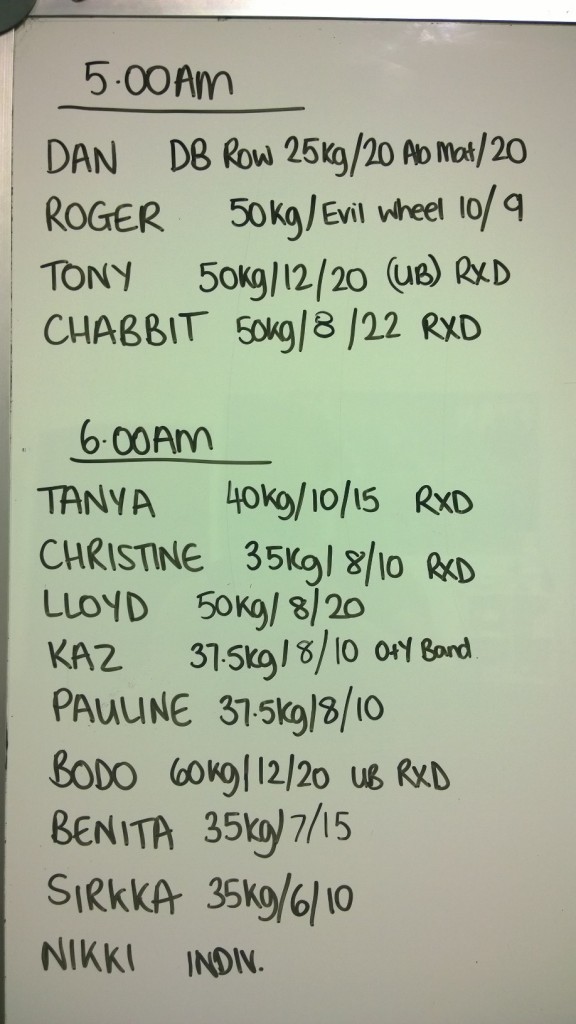 5.00AM
DAN DB Row 25kg/20 Ab Mat/20
ROGER 50kg/Evil Wheel 10/9
TONY 50kg/12/20 (UB) RXD
CHABBIT 50kg/8/22 RXD
6.00AM
TANYA 40kg/10/15 RXD
CHRISTINE 35kg/8/10 RXD
LLOYD 50kg/8/20
KAZ 37.5kg/8/10 O+Y Band
PAULINE 37.5kg/8/10
BODO 60kg/12/20 UB RXD
BENITA 35kg/7/15
SIRKKA 35kg/6/10
NIKKI INDIV.